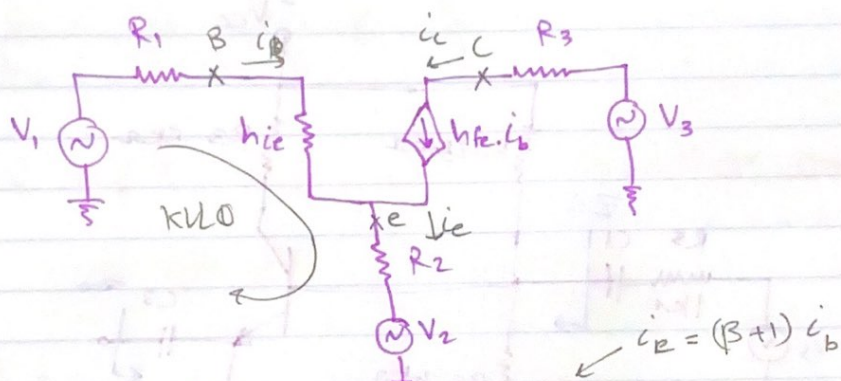 R1 B iB ic C R3
V1 hie hfe.ib V3
KVL①
e ie
R2
V2
iE = (β+1) ib